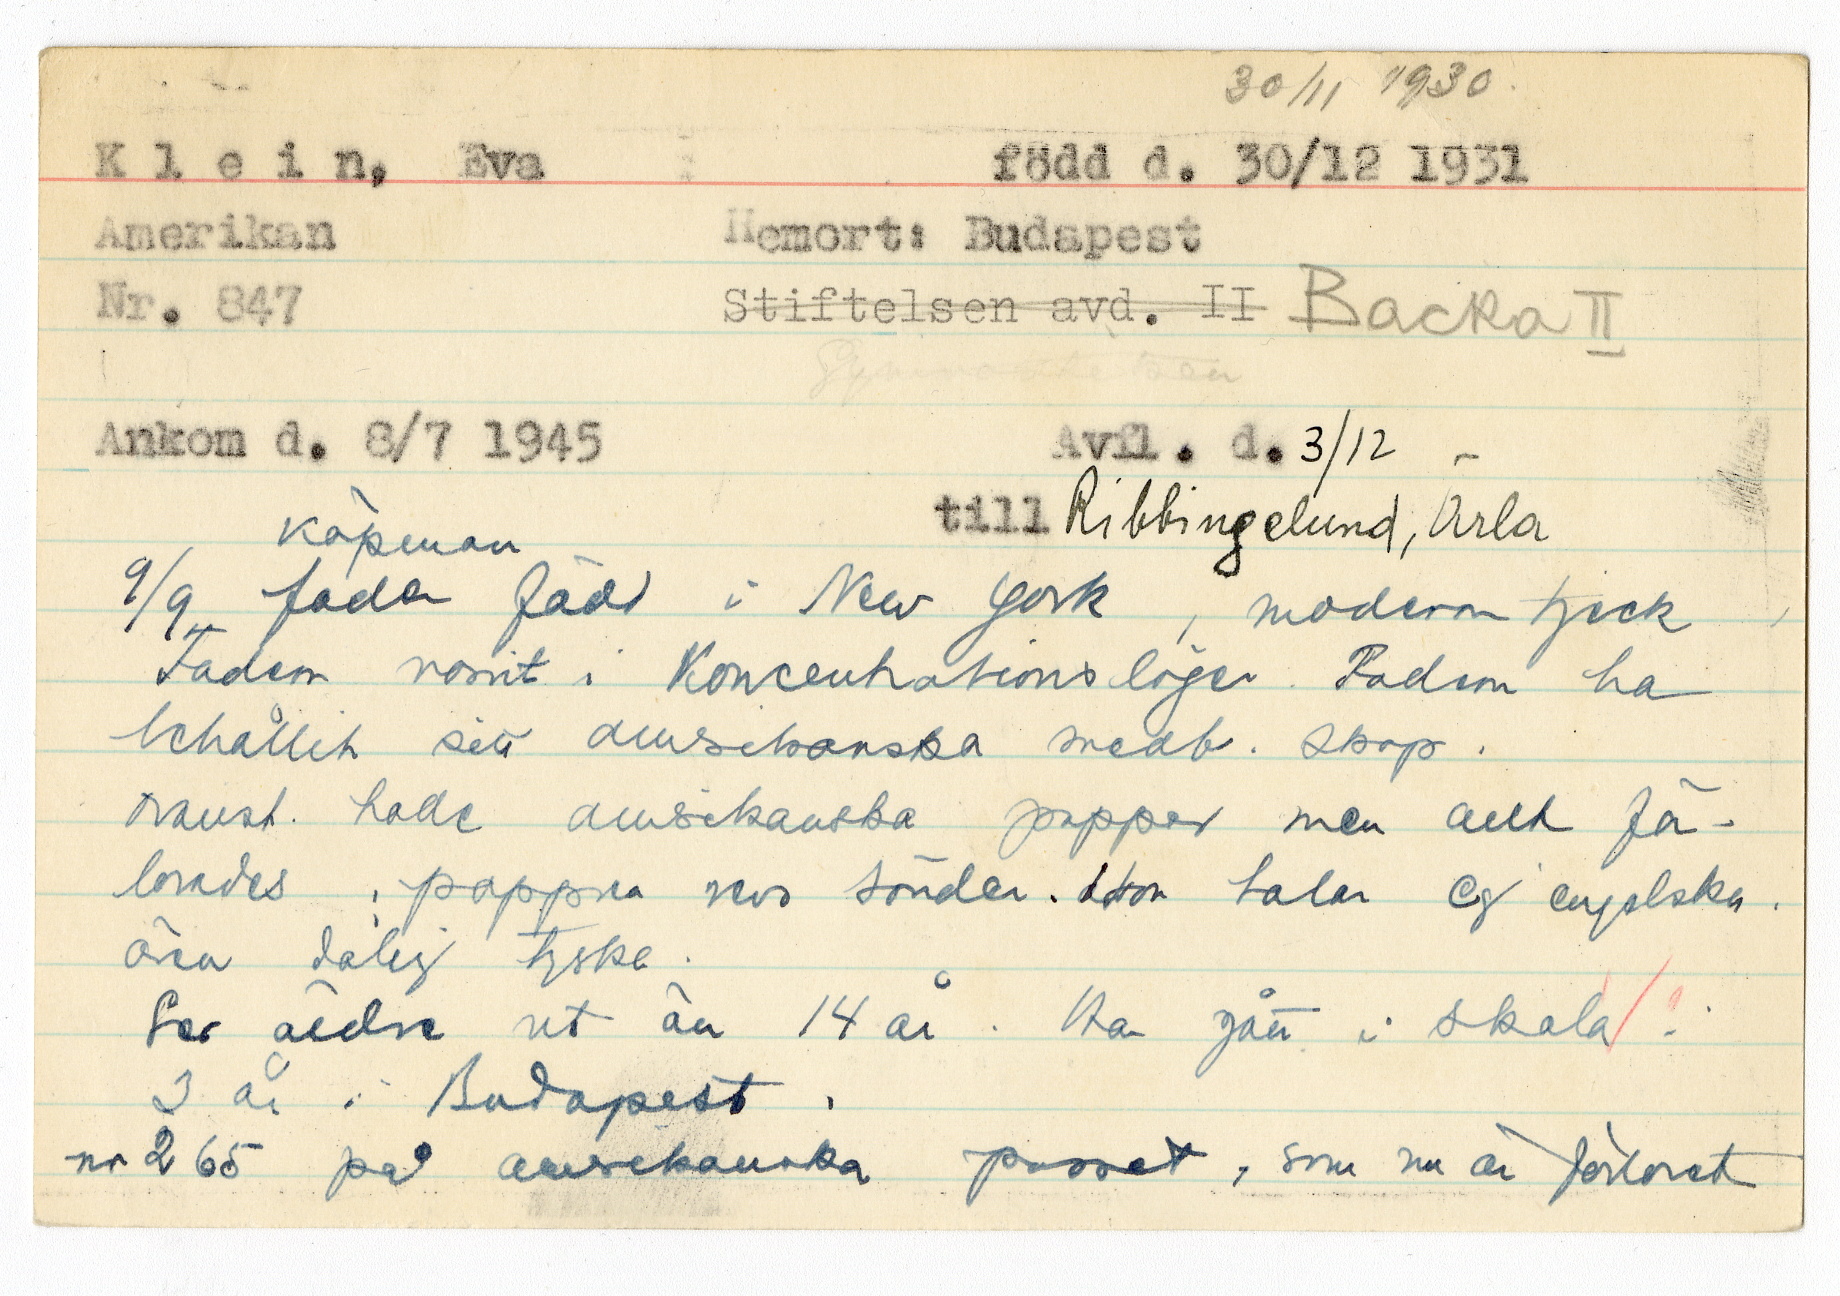 30/11 1930.
Klein, Eva född d. 30/12 1931
Amerikan Hemort: Budapest
Nr. 847 Stiftelsen avd. II Backa II
Ankom d. 8/7 1945 Avfl. d. 3/12 -
till Ribbingelund, Ärla
köpman
9/9 fader född i New York, modern tjeck,
Fadern varit i Koncentrationsläger. Fadern ha
behållit sitt amerikanska medb. skap.
hade amerikanska papper men allt för-
lorades, papprna revs sönder. Hon talar ej engelska.
även dålig tyska.
Ser äldre ut än 14 år. Ha gått i skola
3 år i Budapest.
nr 265 på amerikanska passet, som nu är förlorat